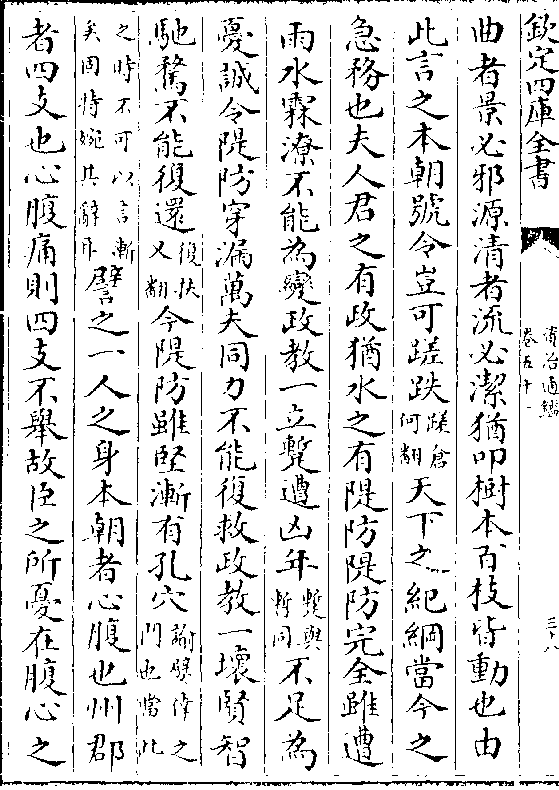 欽定四庫全書
資治通鑑
卷五十一
三十八
曲者景必邪源清者流必潔猶叩樹本百枝皆動也由
此言之本朝號令豈可蹉跌蹉倉何翻天下之紀綱當今之
急務也夫人君之有政猶水之有隄防隄防完全雖遭
雨水霖潦不能為變政教一立蹔遭凶年蹔與暫同不足為
憂誠令隄防穿漏萬夫同力不能復救政教一壞賢智
馳騖不能復還復扶又翻今隄防雖堅漸有孔穴諭嬖倖之門也當此
之時不可以言漸矣固特婉其辭耳譬之一人之身本朝者心腹也州郡
者四支也心腹痛則四支不舉故臣之所憂在腹心之